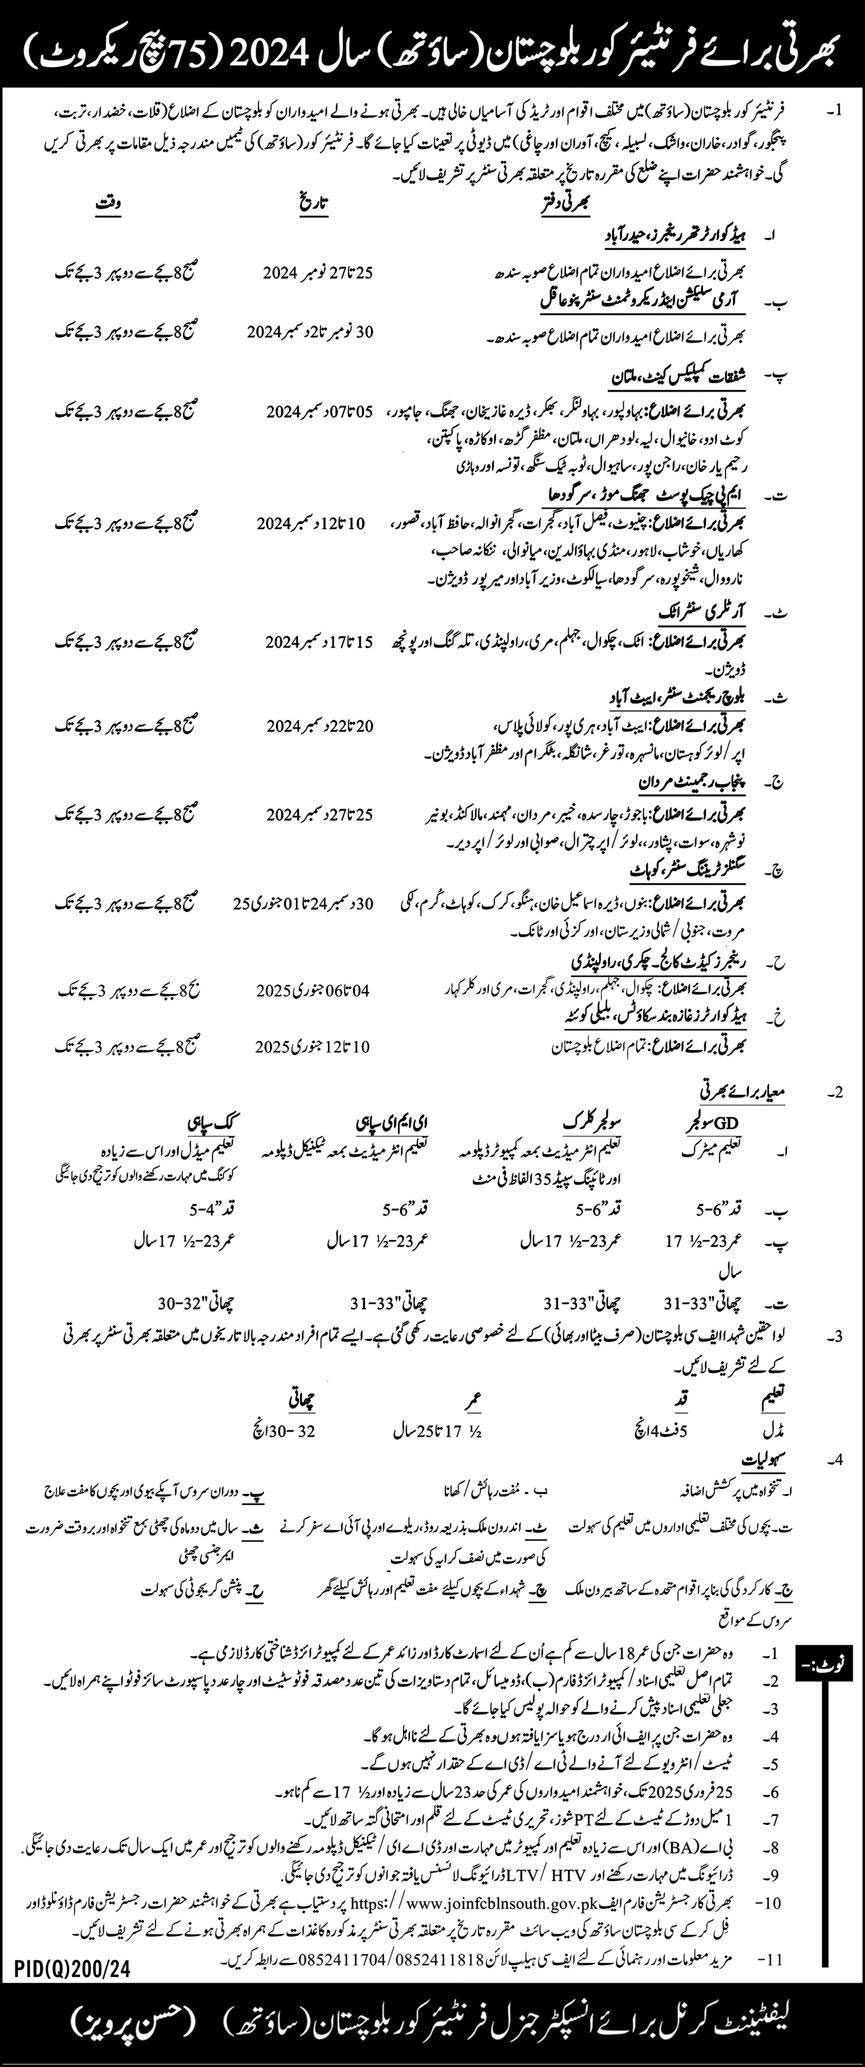 بھرتی برائے فرنٹیئر کور بلوچستان (ساؤتھ) سال 2024 (75 بیچ ریکروٹ)
1- فرنٹیئر کور بلوچستان (ساؤتھ) میں مختلف اقوام اور ٹریڈ کی آسامیاں خالی ہیں۔ بھرتی ہونے والے امیدواران کو بلوچستان کے اضلاع (قلات، خضدار، تربت،
پنجگور، گوادر، خاران، واشک، لسبیلہ، کیچ، آوران اور چاغی) میں ڈیوٹی پر تعینات کیا جائے گا۔ فرنٹیئر کور (ساؤتھ) کی ٹیمیں مندرجہ ذیل مقامات پر بھرتی کریں
گی۔ خواہشمند حضرات اپنے ضلع کی مقررہ تاریخ پر متعلقہ بھرتی سنٹر پر تشریف لائیں۔
بھرتی دفتر تاریخ وقت
ا۔ ہیڈ کوارٹر تھر رینجرز، حیدر آباد
بھرتی برائے اضلاع امیدواران تمام اضلاع صوبہ سندھ 25 تا 27 نومبر 2024 صبح 8 بجے سے دوپہر 3 بجے تک
ب۔ آرمی سلیکشن اینڈ ریکروٹمنٹ سنٹر پنوعاقل
بھرتی برائے اضلاع امیدواران تمام اضلاع صوبہ سندھ۔ 30 نومبر تا 2 دسمبر 2024 صبح 8 بجے سے دوپہر 3 بجے تک
پ۔ شفقات کمپلیکس کینٹ، ملتان
بھرتی برائے اضلاع: بہاولپور، بہاولنگر، بھکر، ڈیرہ غازیخان، جھنگ، جامپور، 05 تا 07 دسمبر 2024 صبح 8 بجے سے دوپہر 3 بجے تک
کوٹ ادو، خانیوال، لیہ، لودھراں، ملتان، مظفر گڑھ، اوکاڑہ، پاکپتن،
رحیم یار خان، راجن پور، ساہیوال، ٹوبہ ٹیک سنگھ، تونسہ اور وہاڑی
ت۔ ایم پی چیک پوسٹ جھنگ موڑ، سرگودھا
بھرتی برائے اضلاع: چنیوٹ، فیصل آباد، گجرات، گجرانوالہ، حافظ آباد، قصور، 10 تا 12 دسمبر 2024 صبح 8 بجے سے دوپہر 3 بجے تک
کھاریاں، خوشاب، لاہور، منڈی بہاؤالدین، میانوالی، ننکانہ صاحب،
نارووال، شیخوپورہ، سرگودھا، سیالکوٹ، وزیر آباد اور میر پور ڈویژن۔
ٹ۔ آرٹلری سنٹر اٹک
بھرتی برائے اضلاع: اٹک، چکوال، جہلم، مری، راولپنڈی، تلہ گنگ اور پونچھ 15 تا 17 دسمبر 2024 صبح 8 بجے سے دوپہر 3 بجے تک
ڈویژن۔
ث۔ بلوچ رجمنٹ سنٹر، ایبٹ آباد
بھرتی برائے اضلاع: ایبٹ آباد، ہری پور، کولائی پلاس، 20 تا 22 دسمبر 2024 صبح 8 بجے سے دوپہر 3 بجے تک
اپر/لوئر کوہستان، مانسہرہ، تورغر، شانگلہ، بٹگرام اور مظفر آباد ڈویژن۔
ج۔ پنجاب رجمینٹ مردان
بھرتی برائے اضلاع: باجوڑ، چارسدہ، خیبر، مردان، مہمند، مالاکنڈ، بونیر 25 تا 27 دسمبر 2024 صبح 8 بجے سے دوپہر 3 بجے تک
نوشہرہ، سوات، پشاور، لوئر/ اپر چترال، صوابی اور لوئر/ اپر دیر۔
چ۔ سگنلز ٹریننگ سنٹر، کوہاٹ
بھرتی برائے اضلاع: بنوں، ڈیرہ اسماعیل خان، ہنگو، کرک، کوہاٹ، کُرم، لکی 30 دسمبر 24 تا 01 جنوری 25 صبح 8 بجے سے دوپہر 3 بجے تک
مروت، جنوبی/ شمالی وزیرستان، اورکزئی اور ٹانک۔
ح۔ رینجرز کیڈٹ کالج۔ چکری، راولپنڈی
بھرتی برائے اضلاع: چکوال، جہلم، راولپنڈی، گجرات، مری اور کلر کہار 04 تا 06 جنوری 2025 بج 8 بجے سے دوپہر 3 بجے تک
خ۔ ہیڈ کوارٹرز غازہ بند سکاؤٹس، بلیلی کوئٹہ
بھرتی برائے اضلاع: تمام اضلاع بلوچستان 10 تا 12 جنوری 2025 صبح 8 بجے سے دوپہر 3 بجے تک
2- معیار برائے بھرتی
GD سولجر سولجر کلرک ای ایم ای سپاہی کک سپاہی
ا۔ تعلیم میٹرک تعلیم انٹر میڈیٹ بمعہ کمپیوٹر ڈپلومہ تعلیم انٹر میڈیٹ بمعہ ٹیکنیکل ڈپلومہ تعلیم میڈل اور اس سے زیادہ
اور ٹائپنگ سپیڈ 35 الفاظ فی منٹ کوکنگ میں مہارت رکھنے والوں کو ترجیح دی جائیگی
ب۔ قد ”6–5 قد ”6–5 قد ”6–5 قد ”4–5
پ۔ عمر 23–½ 17 عمر 23–½ 17 سال عمر 23–½ 17 سال عمر 23–½ 17 سال
سال
ت۔ چھاتی "33–31 چھاتی "33–31 چھاتی "33–31 چھاتی "32–30
3- لواحقین شہدا ایف سی بلوچستان (صرف بیٹا اور بھائی) کے لئے خصوصی رعایت رکھی گئی ہے۔ ایسے تمام افراد مندرجہ بالا تاریخوں میں متعلقہ بھرتی سنٹر پر بھرتی
کے لئے تشریف لائیں۔
تعلیم قد عمر چھاتی
مڈل 5 فٹ 4 انچ ½ 17 تا 25 سال 32 -30 انچ
4- سہولیات
ا۔ تنخواہ میں پرکشش اضافہ ب۔ مُفت رہائش/ کھانا پ۔ دوران سروس آپکے بیوی اور بچوں کا مفت علاج
ت۔ بچوں کی مختلف تعلیمی اداروں میں تعلیم کی سہولت ٹ۔ اندرون ملک بذریعہ روڈ، ریلوے اور پی آئی اے سفر کرنے ث۔ سال میں دو ماہ کی چھٹی بمع تنخواہ اور بروقت ضرورت
کی صورت میں نصف کرایہ کی سہولت ایمرجنسی چھٹی
ج۔ کارکردگی کی بنا پر اقوام متحدہ کے ساتھ بیرون ملک چ۔ شہداء کے بچوں کیلئے مفت تعلیم اور رہائش کیلئے گھر ح۔ پنشن گریجوٹی کی سہولت
سروس کے مواقع
نوٹ:-
1- وہ حضرات جن کی عمر 18 سال سے کم ہے اُن کے لئے اسمارٹ کارڈ اور زائد عمر کے لئے کمپیوٹرائزڈ شناختی کارڈ لازمی ہے۔
2- تمام اصل تعلیمی اسناد/ کمپیوٹرائزڈ فارم (ب)، ڈومیسائل، تمام دستاویزات کی تین عدد مصدقہ فوٹو سٹیٹ اور چار عدد پاسپورٹ سائز فوٹو اپنے ہمراہ لائیں۔
3- جعلی تعلیمی اسناد پیش کرنے والے کو حوالہ پولیس کیا جائے گا۔
4- وہ حضرات جن پر ایف آئی ار درج ہو یا سزا یافتہ ہوں وہ بھرتی کے لئے نااہل ہو گا۔
5- ٹیسٹ/ انٹرویو کے لئے آنے والے ٹی اے/ ڈی اے کے حقدار نہیں ہوں گے۔
6- 25 فروری 2025 تک، خواہشمند امیدواروں کی عمر کی حد 23 سال سے زیادہ اور ½ 17 سے کم نا ہو۔
7- 1 میل دوڑ کے ٹیسٹ کے لئے PT شوز، تحریری ٹیسٹ کے لئے قلم اور امتحانی گتہ ساتھ لائیں۔
8- بی اے (BA) اور اس سے زیادہ تعلیم اور کمپیوٹر میں مہارت اور ڈی اے ای/ ٹیکنیکل ڈپلومہ رکھنے والوں کو ترجیح اور عمر میں ایک سال تک رعایت دی جائیگی۔
9- ڈرائیونگ میں مہارت رکھنے اور LTV/ HTV ڈرائیونگ لائسنس یافتہ جوانوں کو ترجیح دی جائیگی۔
10- بھرتی کا رجسٹریشن فارم ایف https://www.joinfcblnsouth.gov.pk پر دستیاب ہے بھرتی کے خواہشمند حضرات رجسٹریشن فارم ڈاؤنلوڈ اور
فِل کر کے سی بلوچستان ساؤتھ کی ویب سائٹ مقررہ تاریخ پر متعلقہ بھرتی سنٹر پر مذکورہ کاغذات کے ہمراہ بھرتی ہونے کے لئے تشریف لائیں۔
11- مزید معلومات اور رہنمائی کے لئے ایف سی ہیلپ لائن 0852411818/0852411704 سے رابطہ کریں۔
PID(Q)200/24
لیفٹیننٹ کرنل برائے انسپکٹر جنرل فرنٹیئر کور بلوچستان (ساؤتھ) (حسن پرویز)